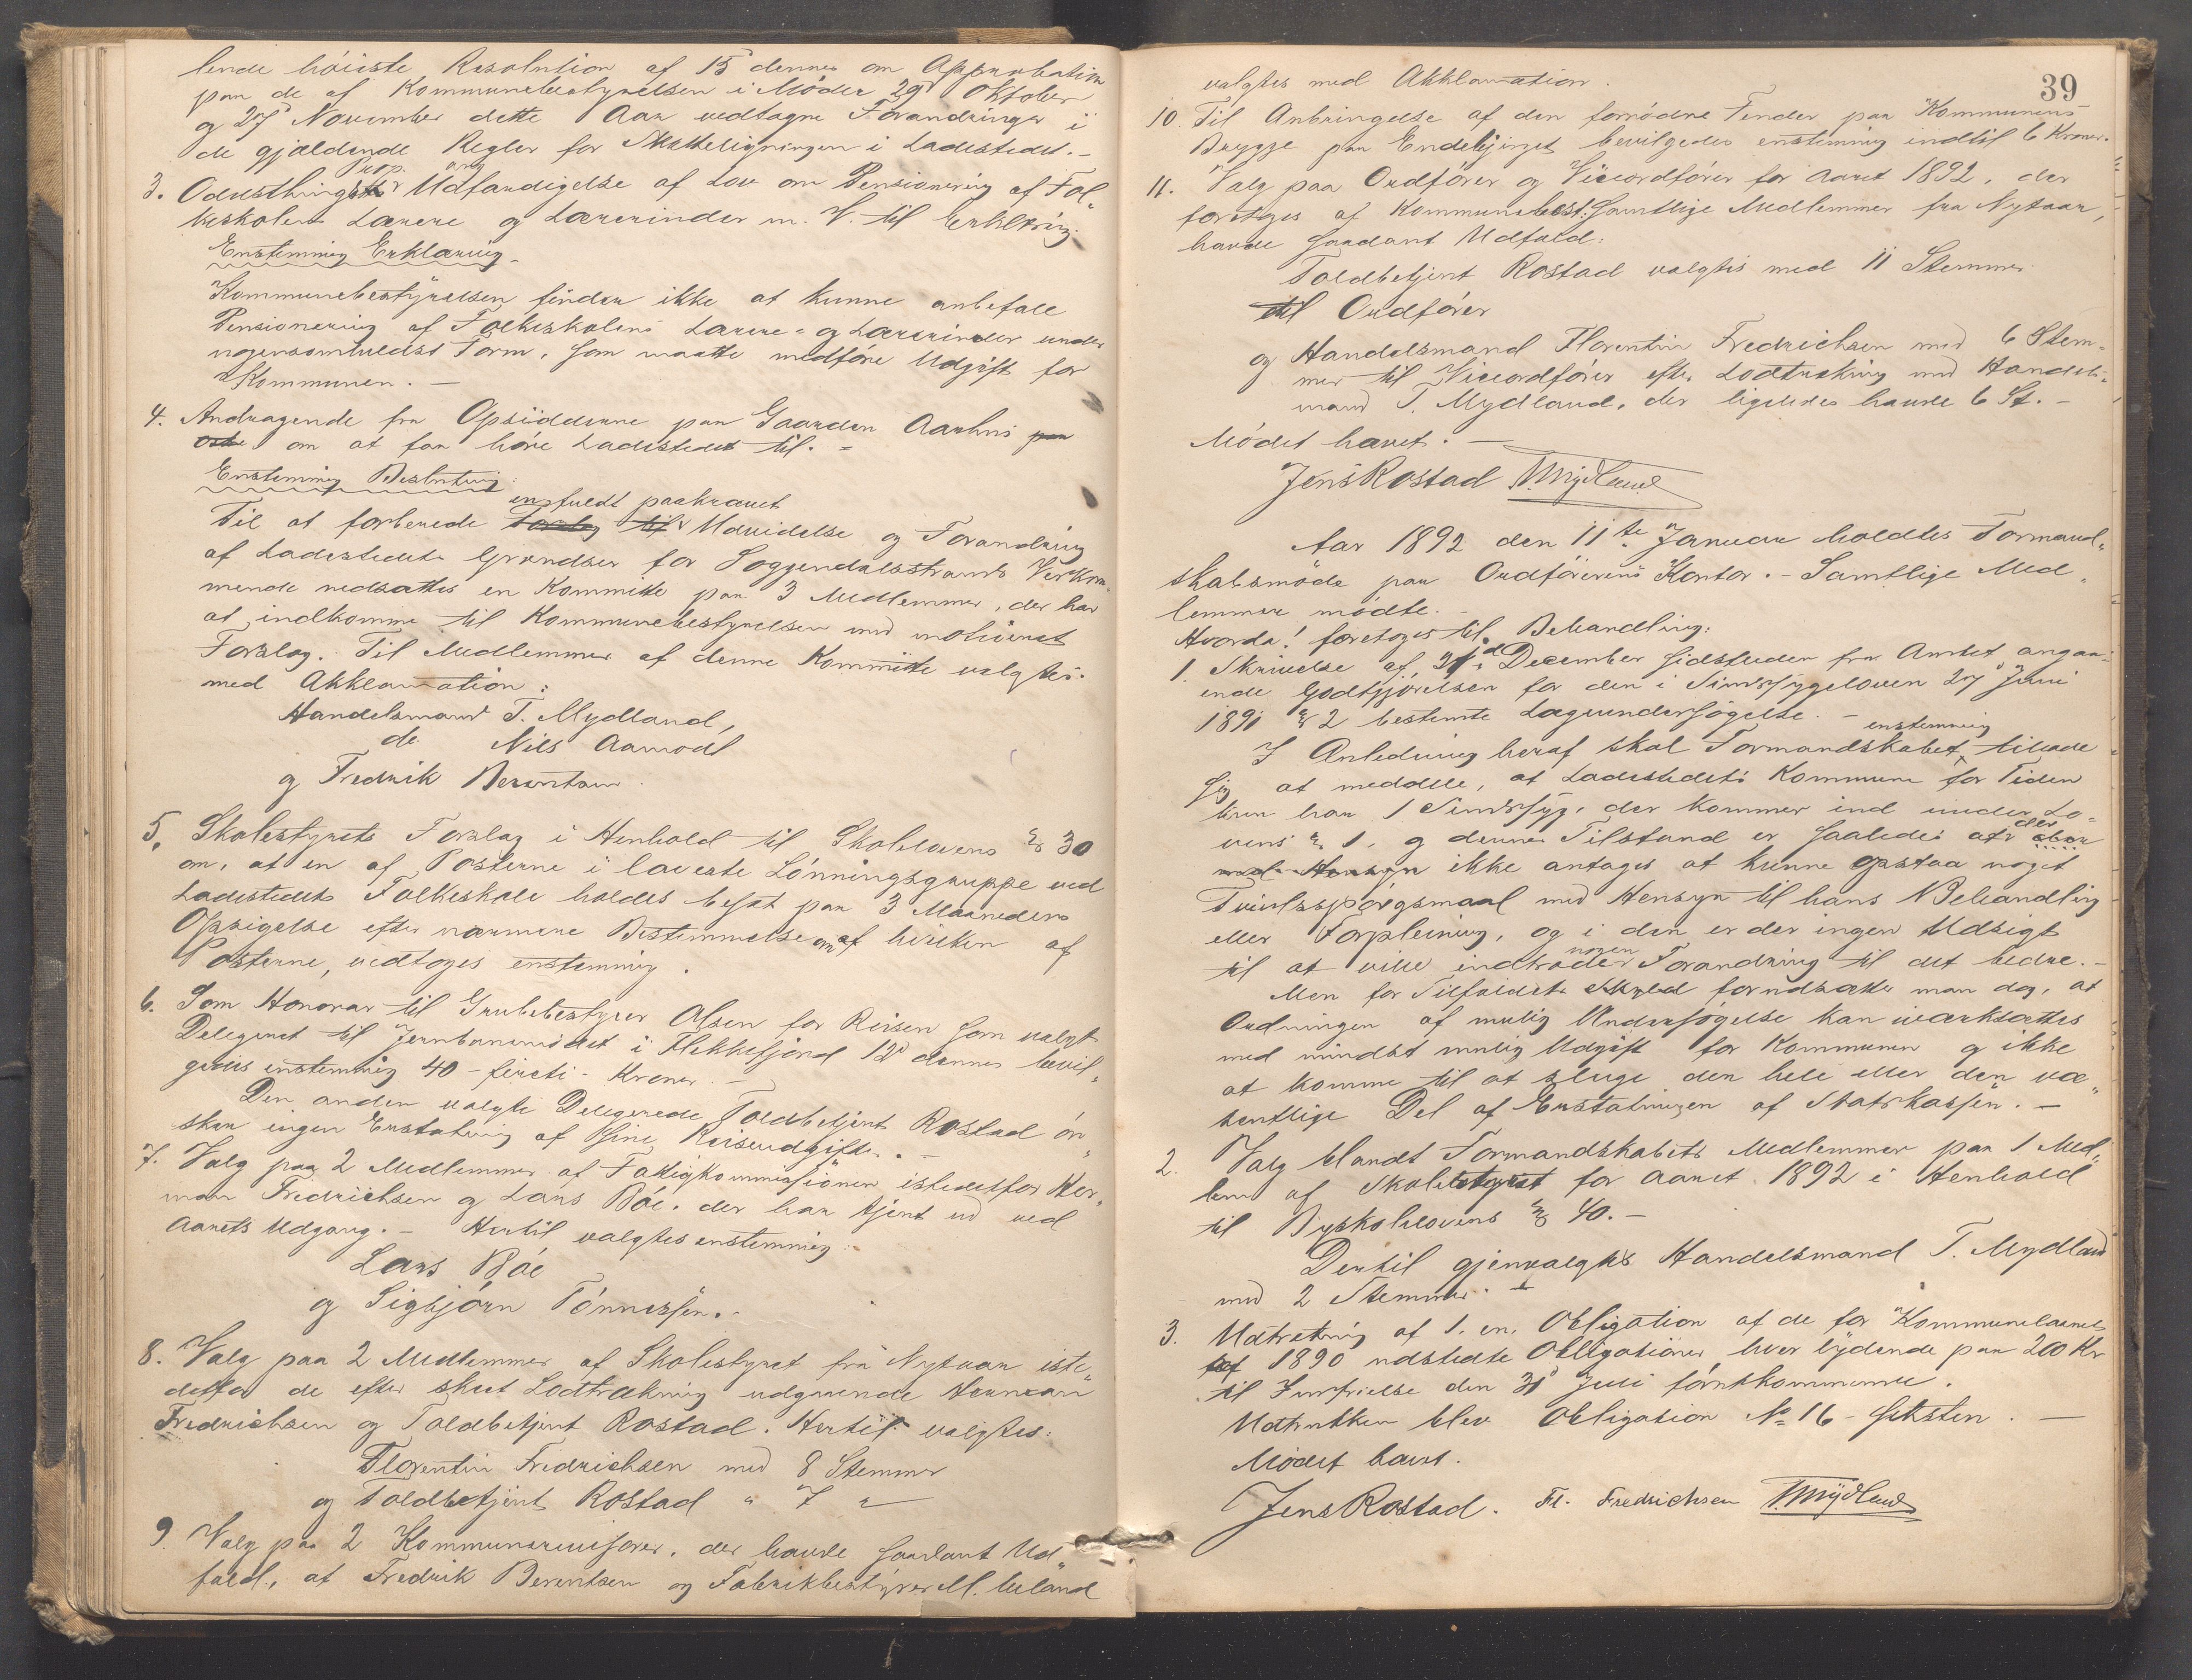 lende høieste Resolution af 15 dennes om Approbation
paa de af Kommunebestyrelsen i Møder 29 Oktober
og 27 November dette Aar vedtagne Forandringer i
de gjældende Regler for Skatteligningen i Ladestedet.-
3. Odelsthings Prop. ang Udfærdigelse af Lov om Pensionering af Fol-
keskolens Lærere og Lærerinder m. V. til Erklæring.
Enstemmig Erklæring.
Kommunebestyrelsen finder ikke at kunne anbefale
Pensionering af Folkeskolens Lærere- og Lærerinder under
nogensomhelst Form, som maatte medføre Udgift for
Kommunen. -
4. Andragende fra Opsidderne paa Gaarden Aarhus paa
om at faa høre Ladestedet til. -
Enstemmig Beslutning:
en fuldt paakrævet
Til at forberede Forslag til Udvidelse og Forandring
af Ladestedets Grændser for Soggendalsstrands Vedkom-
mende nedsættes en Kommitte paa 3 Medlemmer, der har
at indkomme til Kommunebestyrelsen med motiveret
Forslag. Til Medlemmer af denne Kommitte valgtes
med Akklamation:
Handelsmand T. Mydland,
do. Nils Aamodt
og Fredrik Berentsen.
5. Skolestyrets Forslag i Henhold til Skolelovens § 30
om, at en af Posterne i laveste Lønningsgruppe ved
Ladestedets Folkeskole holdes besat paa 3 Maaneders
Opsigelse efter nærmere Bestemmelse om af hvilken af
Posterne, vedtoges enstemmig.
6. Som Honorar til Grubebestyrer Olsen for Reisen som valgt
Delegeret til Jernbanemødet i Flekkefjord 12 dennes bevil-
gedes enstemmig 40 - firti - Kroner. -
Den anden valgte Delegerede Toldbetjent Rostad øn-
sker ingen Erstatning af sine Reiseudgifter. -
7. Valg paa 2 Medlemmer af Fattigkommissionen istedetfor Her-
man Fredrichsen og Lars Bøe, der har tjent ud ved
Aarets Udgang. - Hertil valgtes enstemmig:
Lars Bøe
og Sigbjørn Tønnessen.-
8. Valg paa 2 Medlemmer af Skolestyret fra Nytaar iste-
detfor de efter skeet Lodtrækning udgaaende Herman
Fredrichsen og Toldbetjent Rostad. Hertil valgtes:
Florentin Fredrichsen med 8 Stemmer
og Toldbetjent Rostad " 7 "
9. Valg paa 2 Kommunerevisorer, der havde saadant Ud-
fald, at Fredrik Berentsen og Fabrikbestyrer M. Meland
39
valgtes med Akklamation.
10. Til Anbringelse af den fornødne Fender paa Kommunens
Brygge paa Endebjerget bevilgedes enstemmig indtil 6 Kroner.
11. Valg paa Ordfører og Viceordfører for Aaret 1892, der
foretoges af Kommunebest. samtlige Medlemmer fra Nytaar,
havde saadant Udfald:
Toldbetjent Rostad valgtes med 11 Stemmer
til Ordfører
og Handelsmand Florentin Fredrichsen med 6 Stem-
mer til Viceordfører efter Lodtrækning med Handels-
mand T. Mydland, der ligeledes havde 6 St. -
Mødet hævet. -
Jens Rostad T. Mydland
Aar 1892 den 11te Januar holdtes Formand-
skabsmøde paa Ordførerens Kontor. - Samtlige Med-
lemmer mødte. -
Hvorda! foretoges til Behandling:
1. Skrivelse af 31 December sidstleden fra Amtet angaa-
ende Godtgjørelsen for den i Sindssygeloven 27 Juni
1891 § 2 bestemte Lægeundersøgelse. -
enstemmig
I Anledning heraf skal Formandskabet tillade
sig at meddele, at Ladestedets Kommune for Tiden
kun har 1 Sindssyg, der kommer ind under Lo-
vens § 1, og dennes Tilstand er saaledes at der
med Hensyn ikke antages at kunne opstaa noget
Tvivlsspørgsmaal med Hensyn til hans Behandling
eller Forpleining, og i den er der ingen Udsigt
til at ville indtræde nogen Forandring til det bedre. -
Men for Tilfældets Skyld forudsætter man dog, at
Ordningen af mulig Undersøgelse kan iværksættes
med mindst mulig Udgift for Kommunen og ikke
at komme til at sluge den hele eller den væ-
sentlige Del af Erstatningen af Statskassen. -
2. Valg blandt Formandskabets Medlemmer paa 1 Med-
lem af Skolestyret for Aaret 1892 i Henhold
til Byskolelovens § 40. -
Dertil gjenvalgtes Handelsmand T. Mydland
med 2 Stemmer. -
3. Udtrækning af 1, en, Obligation af de for Kommunelaanet
af 1890 udstedte Obligationer, hver lydende paa 200 Kr
til Indfrielse den 31 Juli førstkommende.
Udtrukken blev Obligation No 16 - seksten. -
Mødet hævet.
Jens Rostad. Fl. Fredrichsen T. Mydland